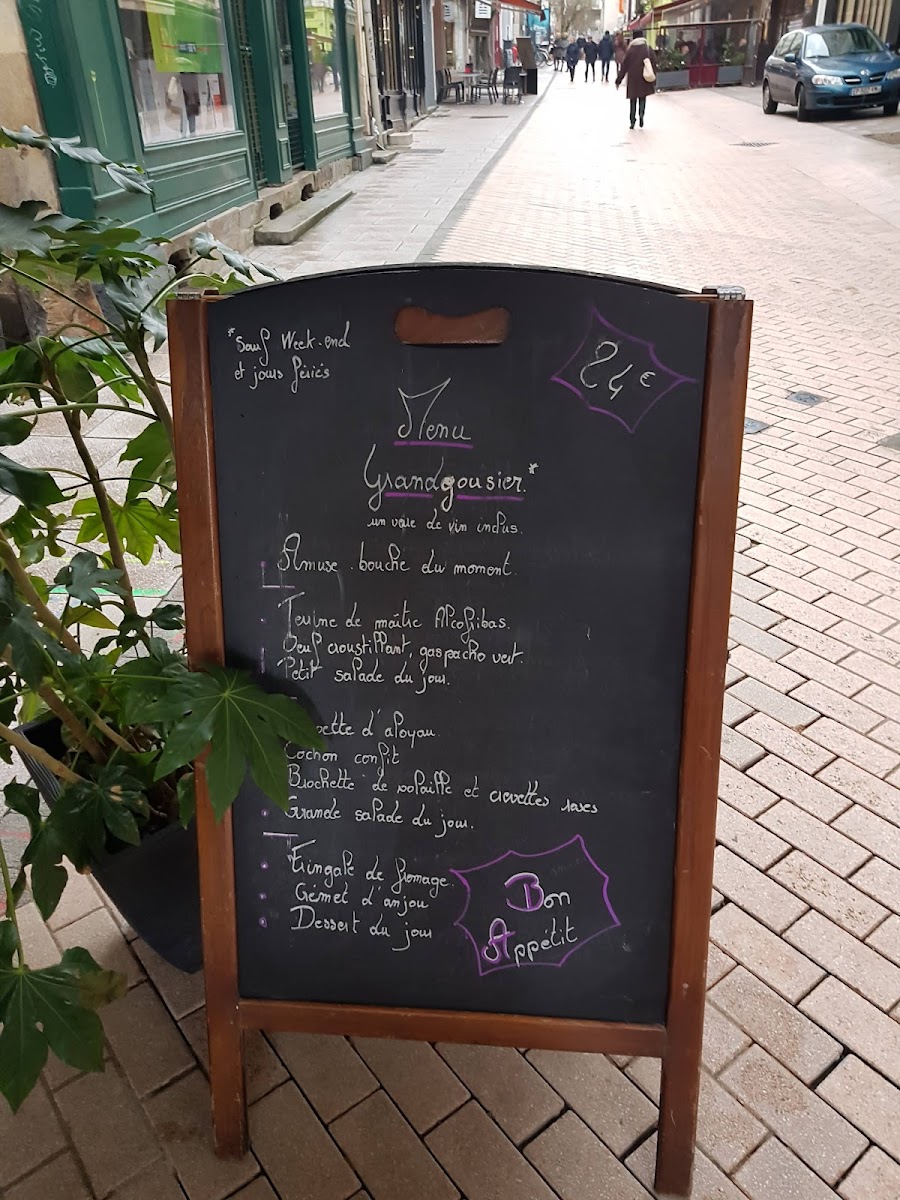 *Sauf Week-end
et jours fériés
24€
Menu
Grandgousier.*
un verre de vin inclus.
Amuse-bouche du moment.
Terrine de maître Alcofribas.
Oeuf croustillant, gaspacho vert.
Petit salade du jour.
d'aloyau.
Cochon confit
Brochette de volaille et crevettes roses
Grande salade du jour.
Fringale de fromage.
Crémet d'anjou
Dessert du jour
Bon
Appétit